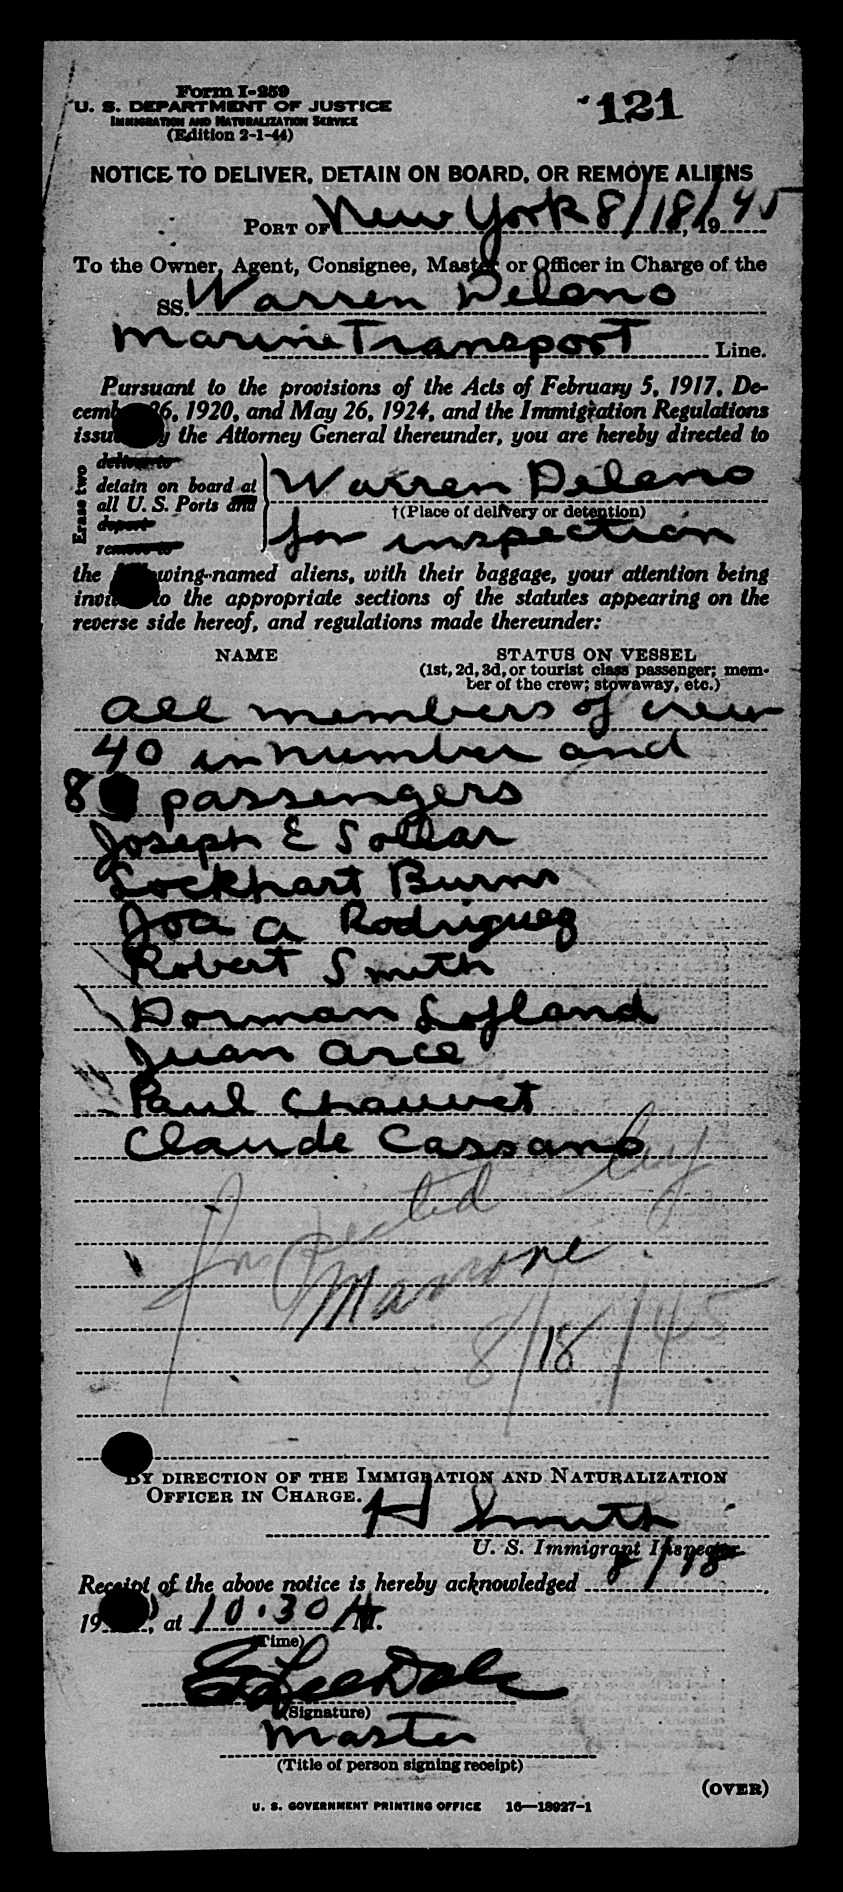 Form I-259
U. S. DEPARTMENT OF JUSTICE
IMMIGRATION AND NATURALIZATION SERVICE
(Edition 2-1-44)
121
NOTICE TO DELIVER, DETAIN ON BOARD, OR REMOVE ALIENS
PORT OF New York 8/18/, 1945
To the Owner, Agent, Consignee, Master or Officer in Charge of the
SS. Warren Delano
Marine Transport Line.
Pursuant to the provisions of the Acts of February 5, 1917, De-
cember 26, 1920, and May 26, 1924, and the Immigration Regulations
issued by the Attorney General thereunder, you are hereby directed to
Erase two
deliver to
detain on board at
all U. S. Ports and
depart
remove to
Warren Delano
†(Place of delivery or detention)
for inspection
the following-named aliens, with their baggage, your attention being
invited to the appropriate sections of the statutes appearing on the
reverse side hereof, and regulations made thereunder:
NAME STATUS ON VESSEL
(1st, 2d, 3d, or tourist class passenger; mem-
ber of the crew; stowaway, etc.)
all members of crew
40 in number and
8 passengers
Joseph E Sollar
Lockhart Burns
Joa a Rodriguez
Robert Smith
Dorman Lofland
Juan Arce
Paul Chauvet
Claude Cassano
Inspected by
8/18/45
BY DIRECTION OF THE IMMIGRATION AND NATURALIZATION
OFFICER IN CHARGE.
H Smith
U. S. Immigrant Inspector.
Receipt of the above notice is hereby acknowledged 8/18,
19, at 10.30 A M.
(Time)
E Lee Dale
(Signature)
Master
(Title of person signing receipt)
(OVER)
U. S. GOVERNMENT PRINTING OFFICE 16—18927-1